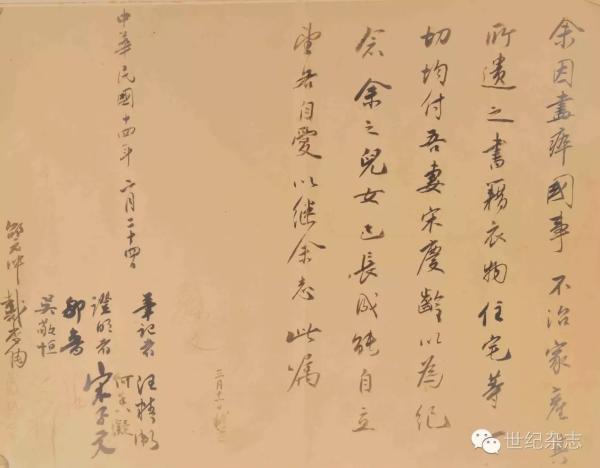 余因盡瘁國事 不治家產其
所遺之書籍衣物住宅等一
切均付吾妻宋慶齡以為紀
念余之兒女已長成能自立
望各自愛以繼余志此囑
三月十一日補
中華民國十四年二月二十四日
筆記者 汪精衛
何香凝
證明者 宋子文
鄒魯
吳敬恒
邵元冲
戴季陶
世纪杂志